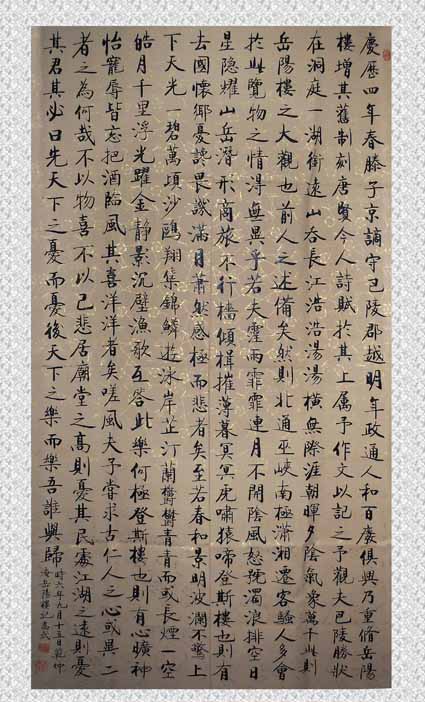 慶歷四年春滕子京謫守巴陵郡越明年政通人和百廢俱興乃重脩岳陽
樓增其舊制刻唐賢今人詩賦於其上属予作文以記之予觀夫巴陵勝狀
在洞庭一湖銜遠山吞長江浩浩湯湯橫無際涯朝暉夕陰氣象萬千此則
岳陽樓之大觀也前人之述備矣然則北通巫峽南極瀟湘遷客騷人多會
於此覽物之情得無異乎若夫霪雨霏霏連月不開陰風怒號濁浪排空日
星隱耀山岳潛形商旅不行檣傾楫摧薄暮冥冥虎嘯猿啼登斯樓也則有
去國懷鄉憂讒畏譏滿目蕭然感極而悲者矣至若春和景明波瀾不驚上
下天光一碧萬頃沙鷗翔集錦鱗游泳岸芷汀蘭鬱鬱青青而或長煙一空
皓月千里浮光躍金靜影沉璧漁歌互答此樂何極登斯樓也則有心曠神
怡寵辱皆忘把酒臨風其喜洋洋者矣嗟風夫予嘗求古仁人之心或異二
者之為何哉不以物喜不以己悲居廟堂之高則憂其民處江湖之遠則憂
其君其必曰先天下之憂而憂後天下之樂而樂吾誰與歸
時六年九月十五日
岳陽樓記